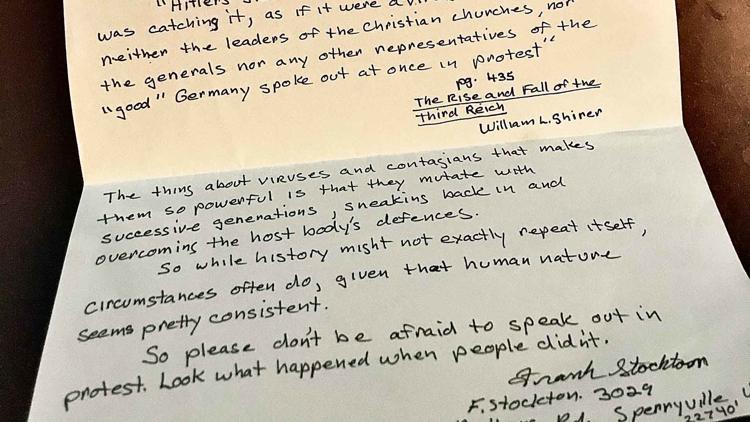 "Hitlers
was catching it, as if it were a
neither the leaders of the Christian churches, nor
the generals nor any other representatives of the
"good" Germany spoke out at once in protest"
pg. 435
The Rise and Fall of the
Third Reich
William L. Shirer
The thing about viruses and contagians that makes
them so powerful is that they mutate with
successive generations, sneaking back in and
overcoming the host body's defences.
So while history might not exactly repeat itself,
circumstances often do, given that human nature
seems pretty consistent.
So please don't be afraid to speak out in
protest. Look what happened when people didn't.
Frank Stockton
F. Stockton. 3029
Rd. Sperryville
22740